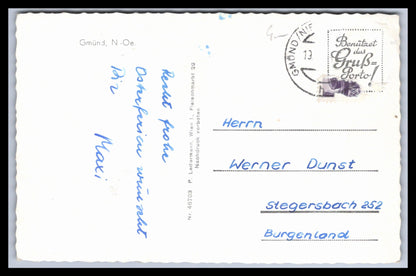 Gmünd, N.-Oe.
Recht frohe
Osterferien wünscht
Dir
Maxi
Nr. 40703 P. Ledermann, Wien I., Fleischmarkt 20
Nachdruck verboten
GMÜND (NIE
13
Benützet
das
Gruß=
Porto!
Herrn
Werner Dunst
Stegersbach 252
Burgenland